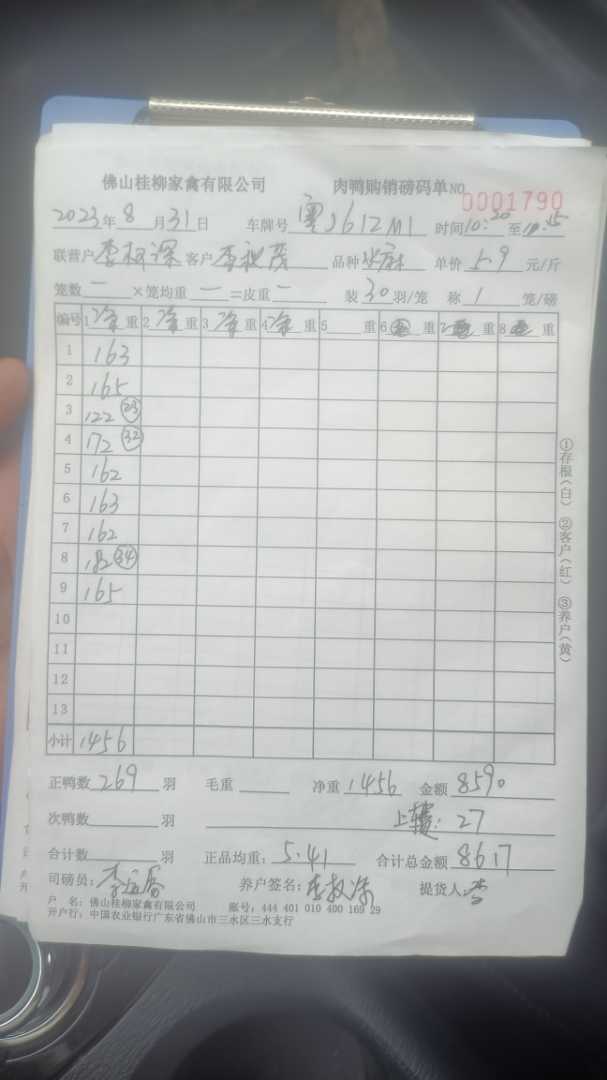 佛山桂柳家禽有限公司 肉鸭购销磅码单 NO 0001790
2023年8月31日 车牌号 粤J612M1 时间10:20至10:
联营户 李 客户 李 品种 单价 5.9 元/斤
笼数 一 ×笼均重 一 =皮重 一 装 30 羽/笼 称 1 笼/磅
编号 1 净 重 2 净 重 3 净 重 4 净 重 5 重 6 重 7 重 8 重
1 163
2 165
3 122 (23)
4 172 (32)
5 162
6 163
7 162
8 182 (34)
9 165
10
11
12
13
小计 1456
①存根(白) ②客户(红) ③养户(黄)
正鸭数 269 羽 毛重 净重 1456 金额 8590
次鸭数 羽 上 : 27
合计数 羽 正品均重: 5.41 合计总金额 8617
司磅员: 李 养户签名: 李 提货人: 李
户 名: 佛山桂柳家禽有限公司 账号: 444 401 010 400 169 29
开户行: 中国农业银行广东省佛山市三水区三水支行